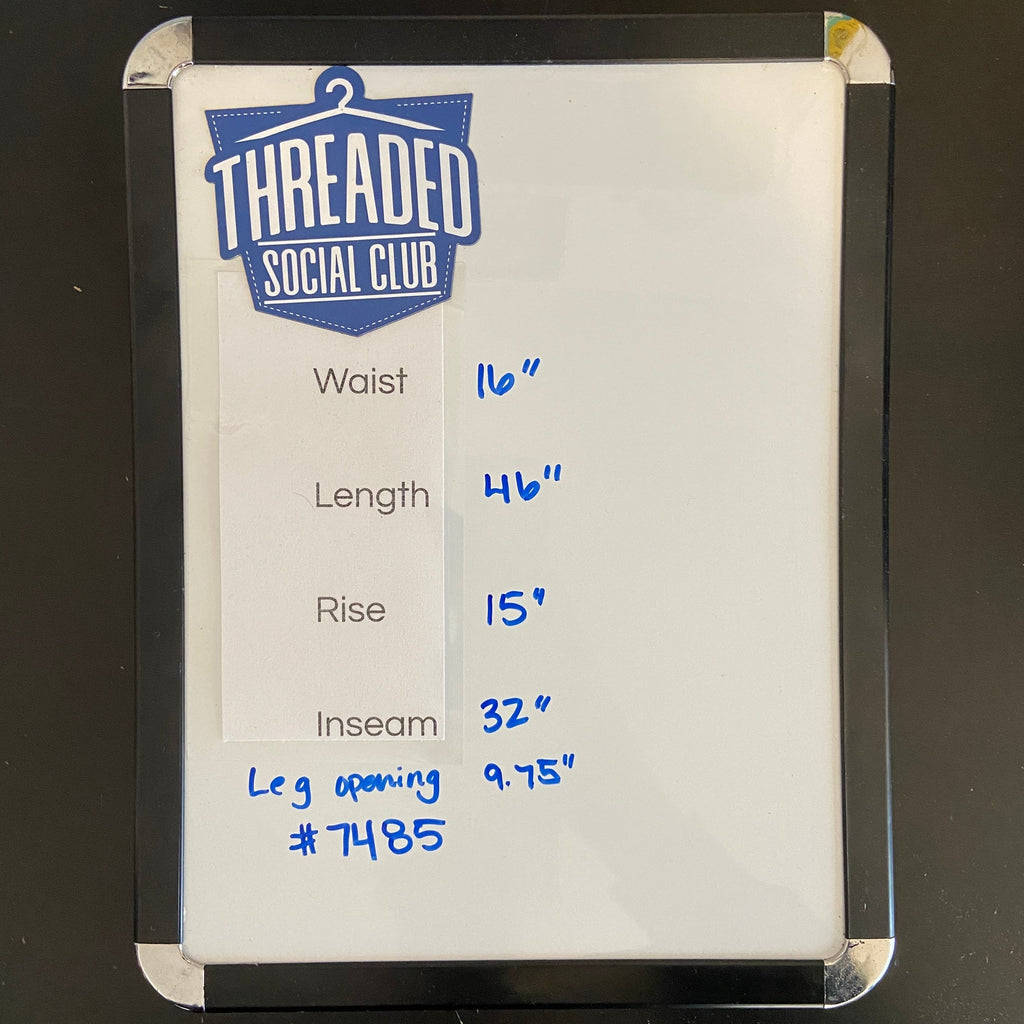 THREADED
SOCIAL CLUB
Waist 16"
Length 46"
Rise 15"
Inseam 32"
Leg opening 9.75"
#7485